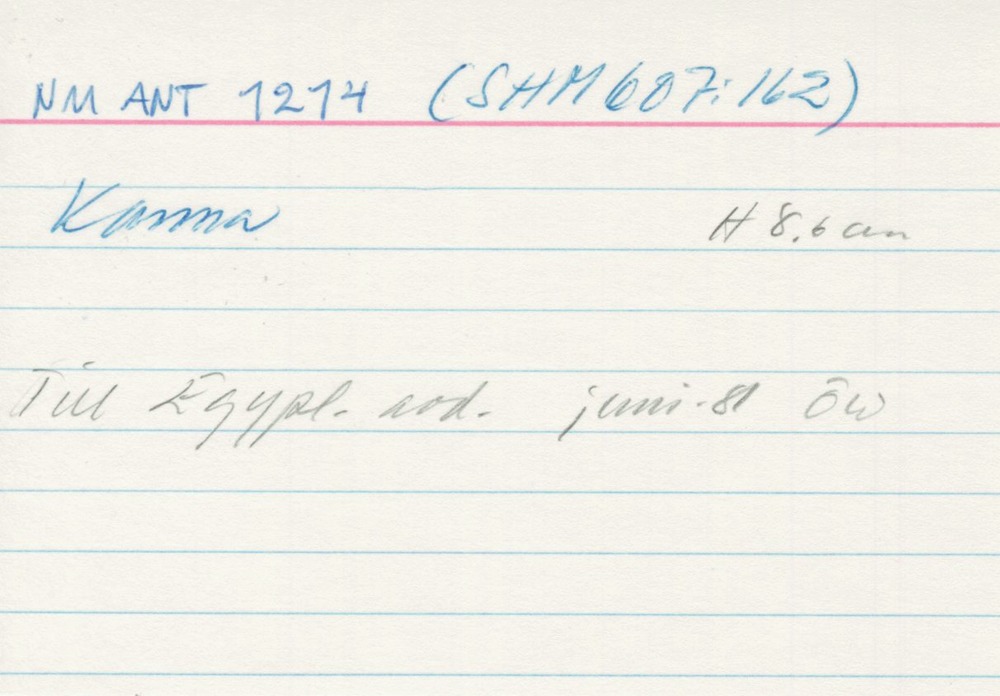 NM ANT 1214 (SHM 607:162)
Kanna H 8,6 cm
Till Egypt. avd. juni-81 ÖW